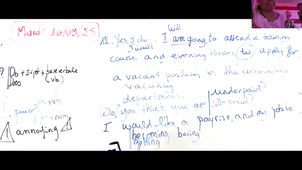 Mardi 16/09/25
Will
12. Yes, I do. I am going to attend a training
I would
course and evening classes (to) apply for
a vacant position in the
vacancy
department. underpaid?
Do you think you are
I would like a payrise, and my job is
becoming boring
getting
Do + sujet + base verbale
Does (Vb)
annoying